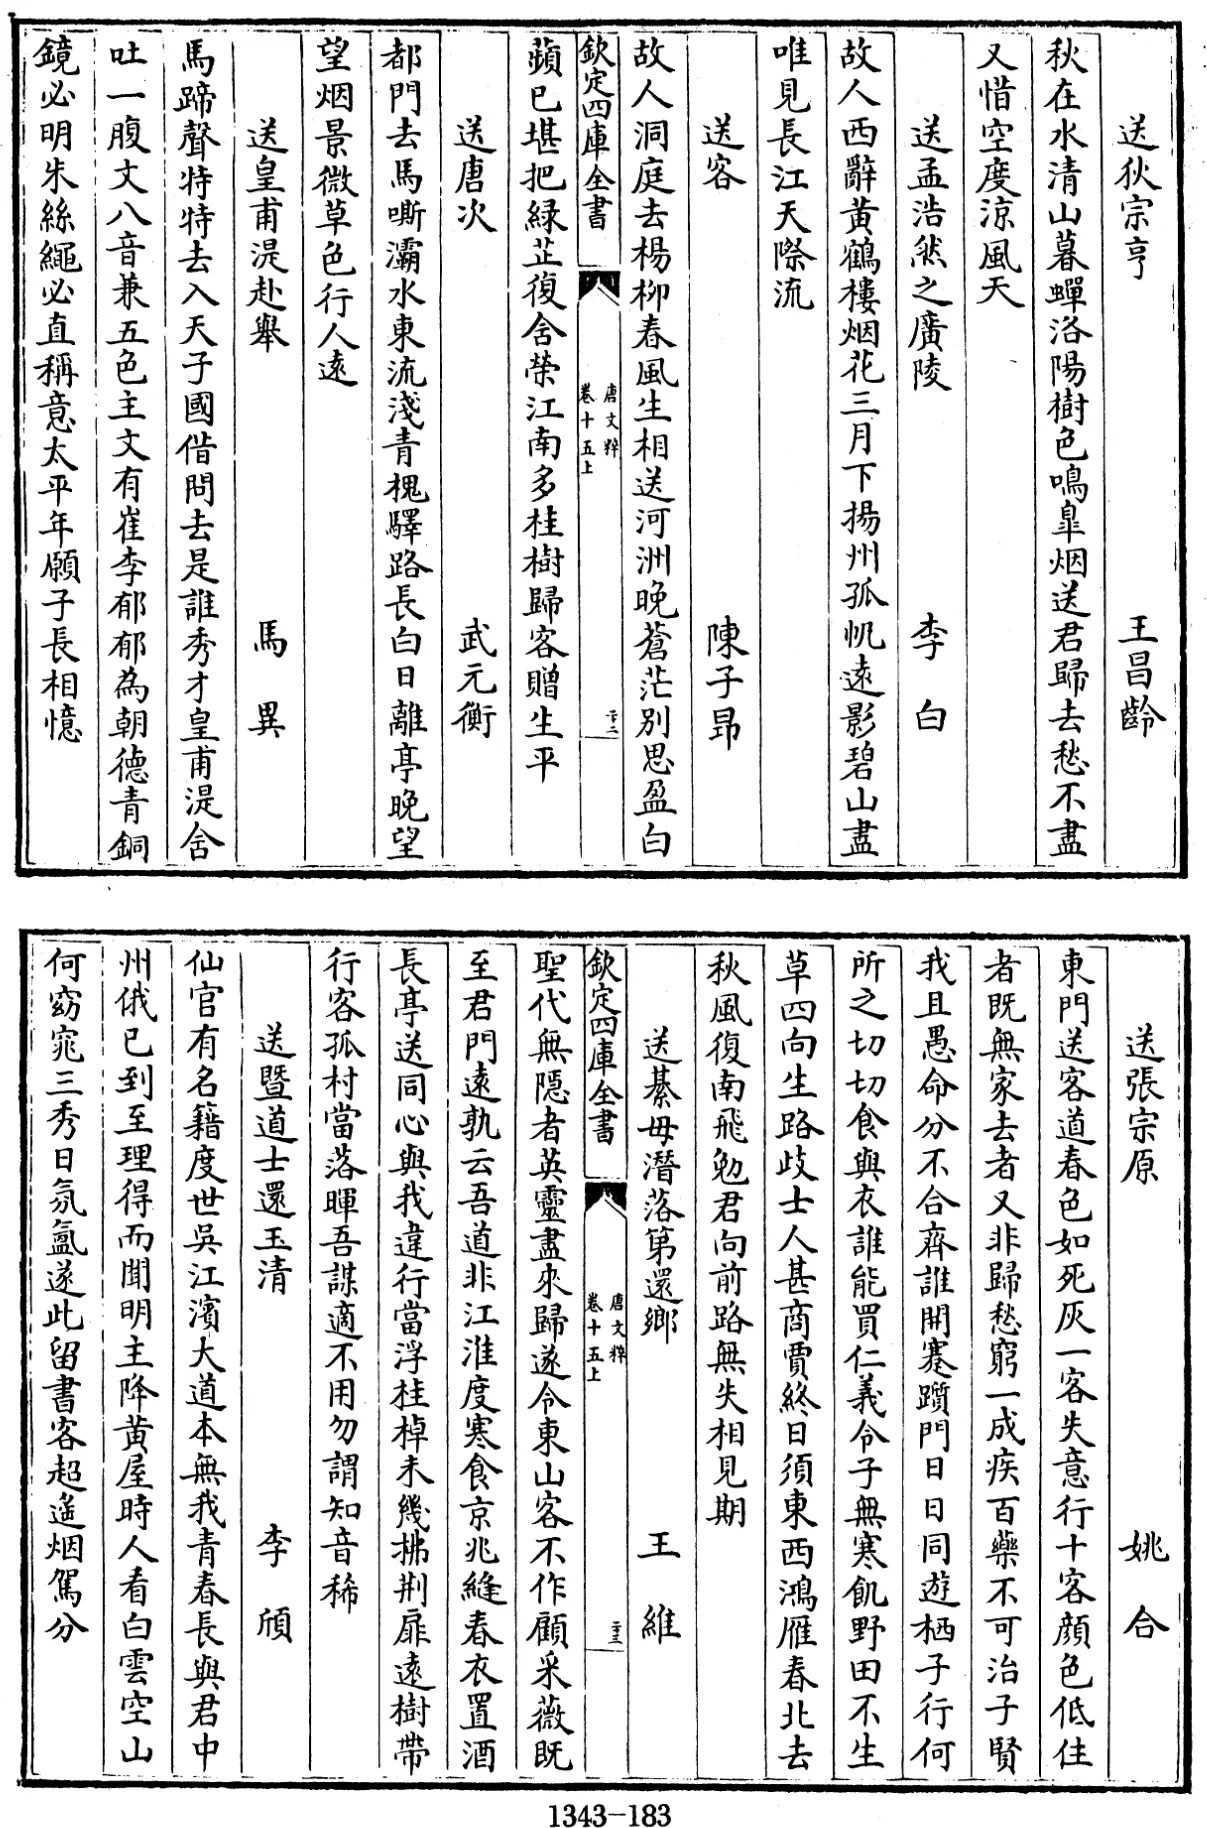 送狄宗亨　王昌齡
秋在水清山暮蟬洛陽樹色鳴臯烟送君歸去愁不盡
又惜空度涼風天
送孟浩然之廣陵　李　白
故人西辭黃鶴樓烟花三月下揚州孤帆遠影碧山盡
唯見長江天際流
送客　陳子昂
故人洞庭去楊柳春風生相送河洲晚蒼茫別思盈白
欽定四庫全書　唐文粹　卷十五上　二十二
蘋已堪把綠芷復含榮江南多桂樹歸客贈生平
送唐次　武元衡
都門去馬嘶灞水東流淺青槐驛路長白日離亭晚望
望烟景微草色行人遠
送皇甫湜赴舉　馬　異
馬蹄聲特特去入天子國借問去是誰秀才皇甫湜含
吐一腹文八音兼五色主文有崔李郁郁為朝德青銅
鏡必明朱絲繩必直稱意太平年願子長相憶
送張宗原　姚　合
東門送客道春色如死灰一客失意行十客顏色低住
者既無家去者又非歸愁窮一成疾百藥不可治子賢
我且愚命分不合齊誰開蹇躓門日日同遊栖子行何
所之切切食與衣誰能買仁義令子無寒飢野田不生
草四向生路歧士人甚商賈終日須東西鴻雁春北去
秋風復南飛勉君向前路無失相見期
送綦毋潛落第還鄉　王　維
欽定四庫全書　唐文粹　卷十五上　二十三
聖代無隱者英靈盡來歸遂令東山客不作顧采薇既
至君門遠孰云吾道非江淮度寒食京兆縫春衣置酒
長亭送同心與我違行當浮桂棹未幾拂荆扉遠樹帶
行客孤村當落暉吾謀適不用勿謂知音稀
送暨道士還玉清　李　頎
仙官有名籍度世吳江濱大道本無我青春長與君中
州俄已到至理得而聞明主降黃屋時人看白雲空山
何窈窕三秀日氛氲遂此留書客超遙烟駕分
1343-183